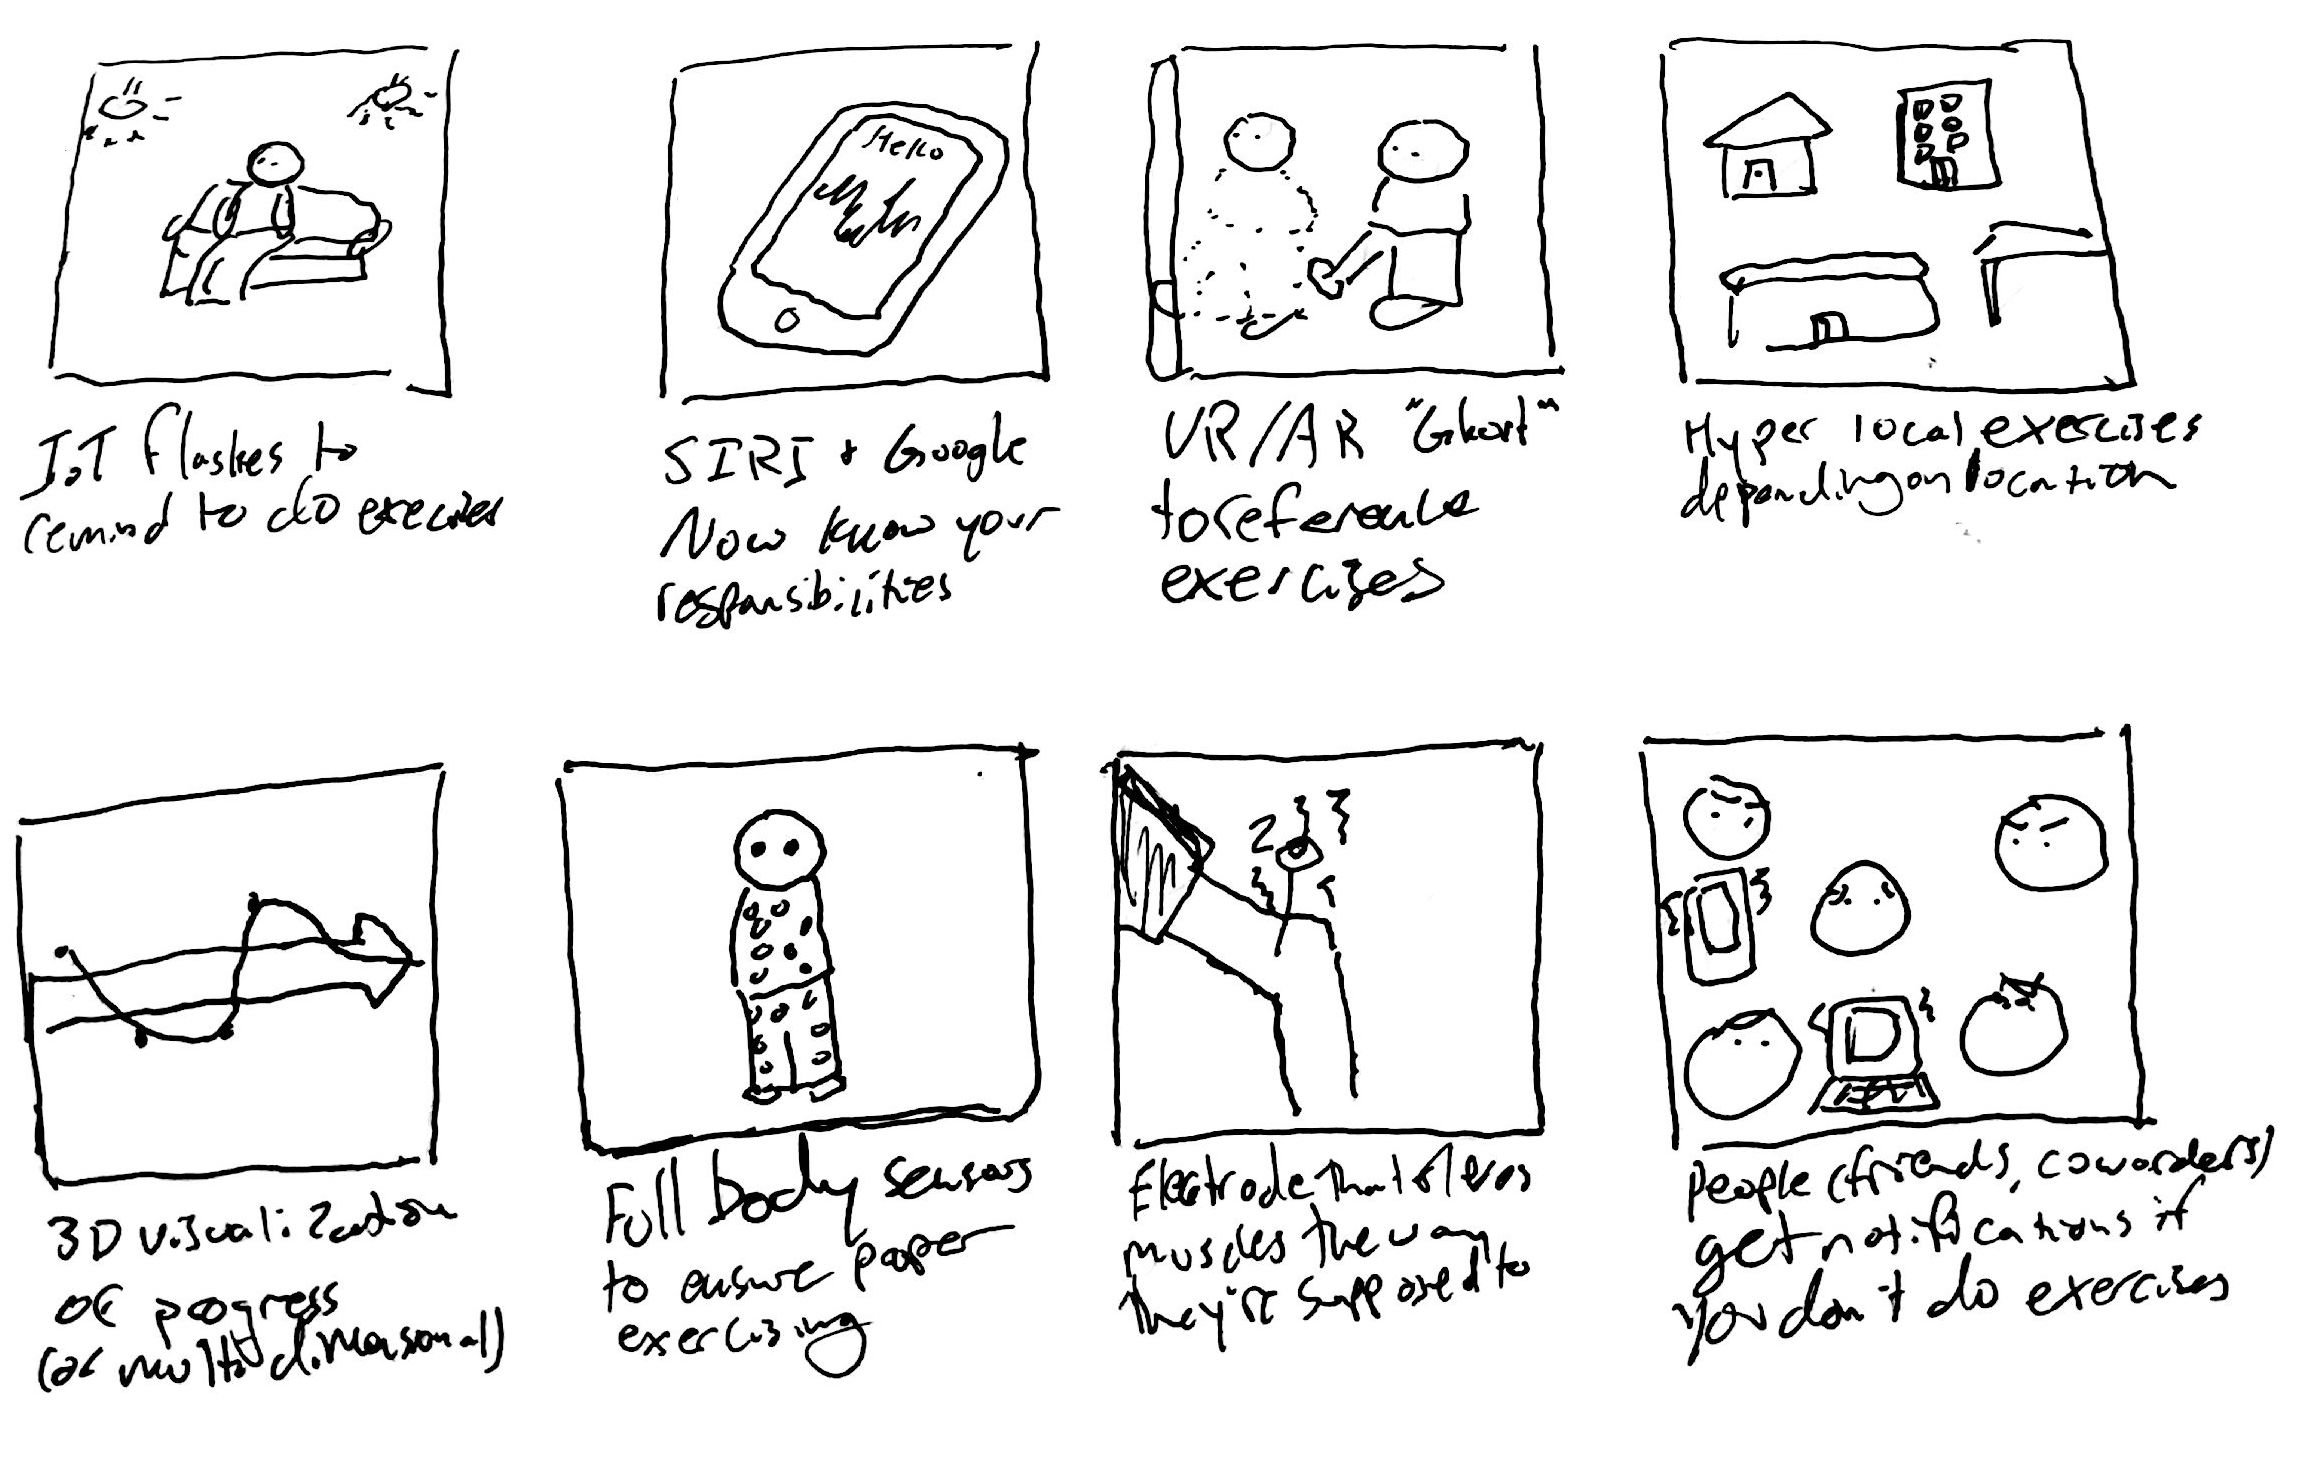 Hello
IoT flashes to
remind to do exercises
SIRI + Google
Now know your
responsibilities
VR/AR "Ghost"
to reference
exercises
Hyper local exercises
depending on location
3D visualization
of progress
(or multi dimensional)
Full body sensors
to ensure proper
exercising
Electrode that flexes
muscles the way
they're supposed to
people (friends, coworders)
get notifications if
you don't do exercises